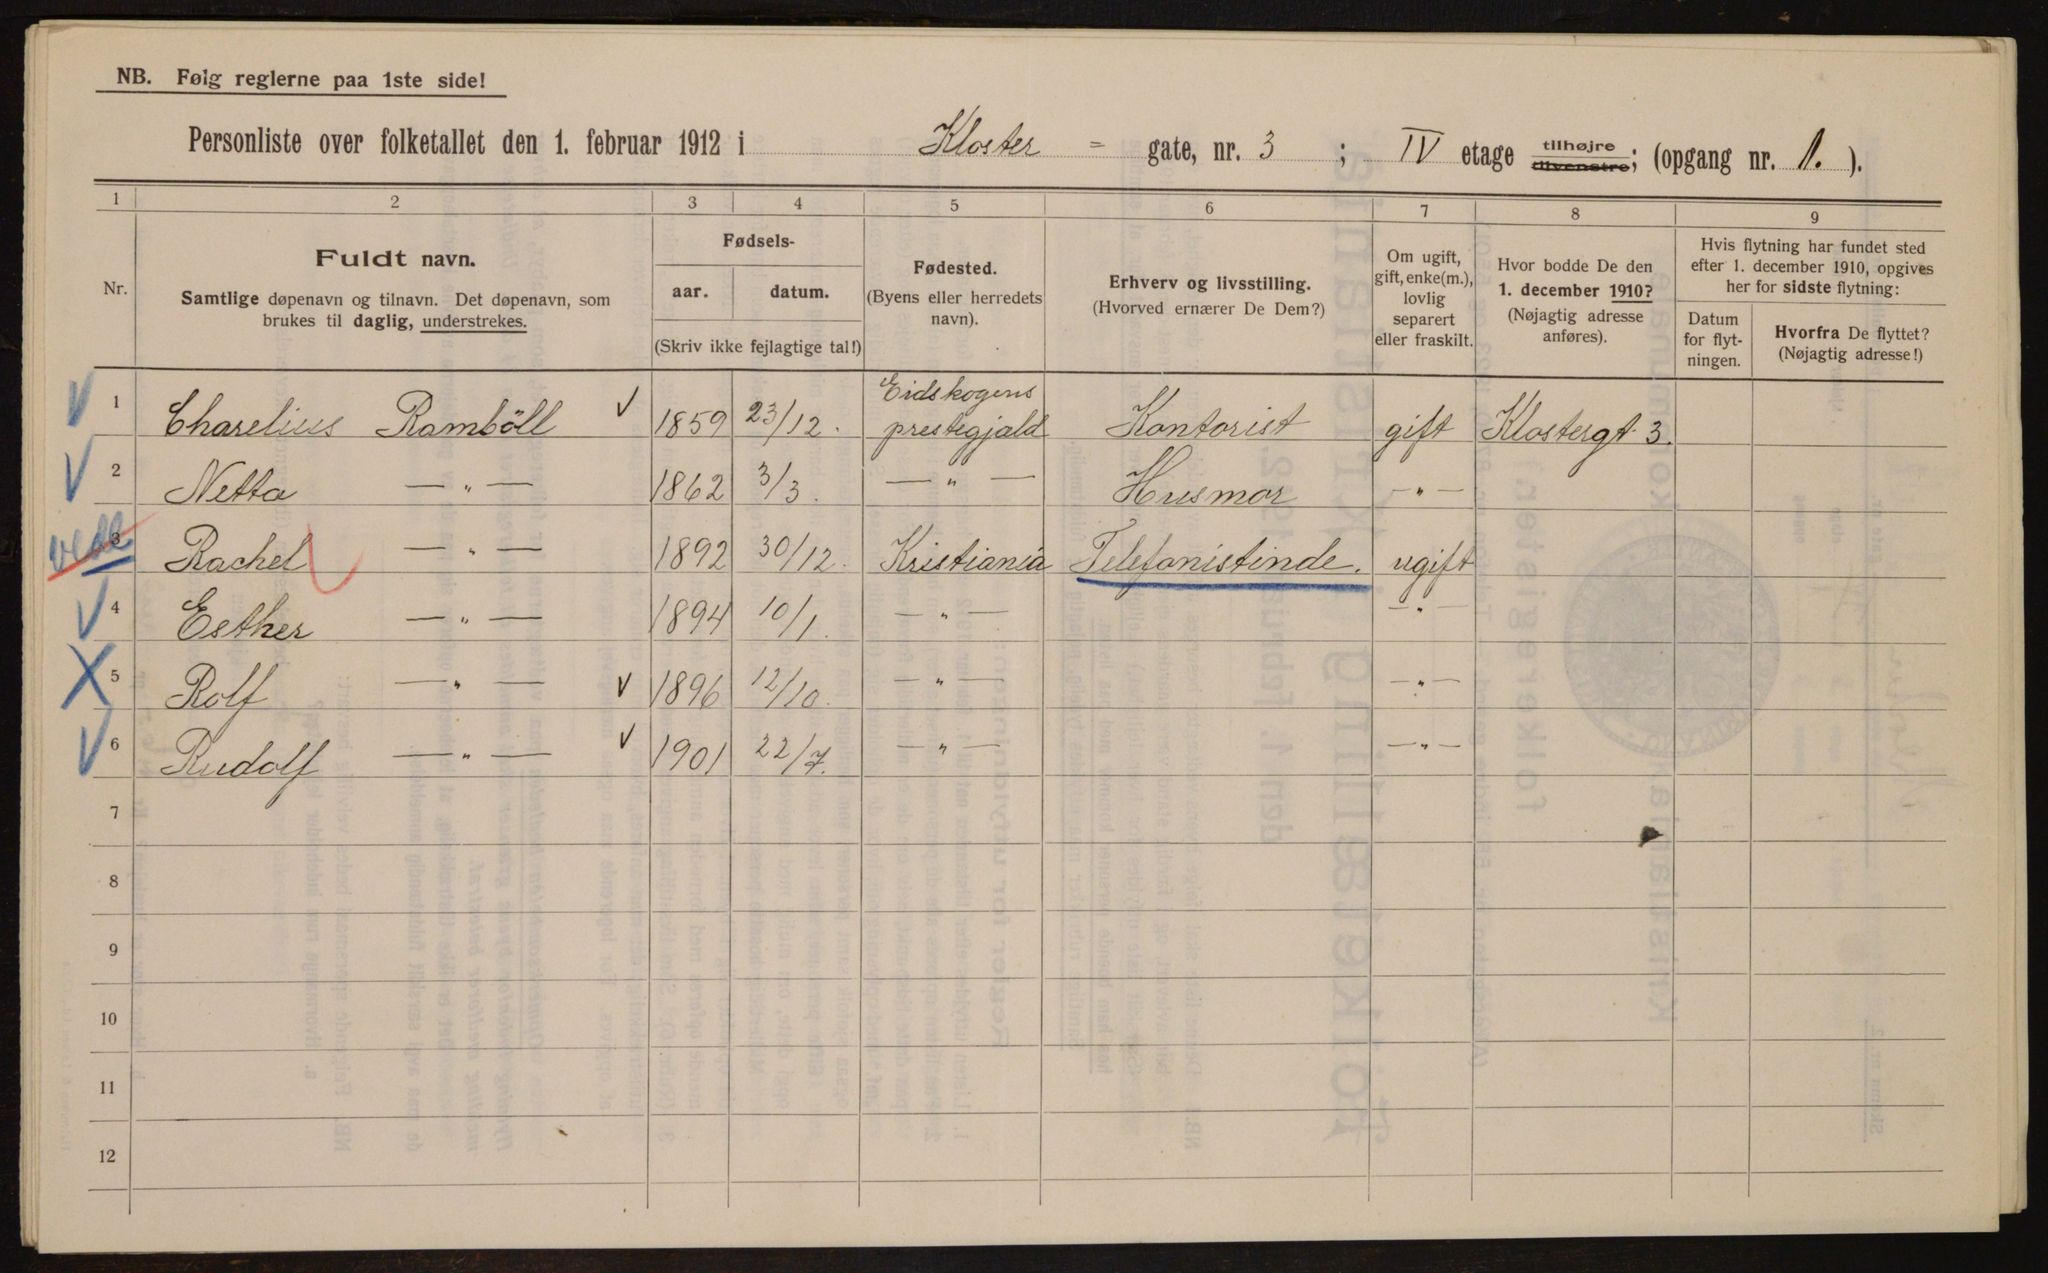 NB. Følg reglerne paa 1ste side!
Personliste over folketallet den 1. februar 1912 i Kloster = gate, nr. 3 ; IV etage tilhøjre tilvenstre; (opgang nr. 1. ).
1 2 3 4 5 6 7 8 9
Nr.
Fuldt navn.
Samtlige døpenavn og tilnavn. Det døpenavn, som
brukes til daglig, understrekes.
Fødsels-
aar. datum.
(Skriv ikke fejlagtige tal!)
Fødested.
(Byens eller herredets
navn).
Erhverv og livsstilling.
(Hvorved ernærer De Dem?)
Om ugift,
gift, enke(m.),
lovlig
separert
eller fraskilt.
Hvor bodde De den
1. december 1910?
(Nøjagtig adresse
anføres).
Hvis flytning har fundet sted
efter 1. december 1910, opgives
her for sidste flytning:
Datum
for flyt-
ningen.
Hvorfra De flyttet?
(Nøjagtig adresse!)
1 Charelius Ramböll 1859 23/12. Eidskogens prestegjald Kontorist gift Klostergt 3.
2 Netta — " — 1862 3/3. — " — Husmor — " —
3 Rachel — " — 1892 30/12. Kristiania Telefonistinde. ugift
4 Esther — " — 1894 10/1. — " — — " —
5 Rolf — " — 1896 12/10. — " — — " —
6 Rudolf — " — 1901 22/7. — " — — " —
7
8
9
10
11
12